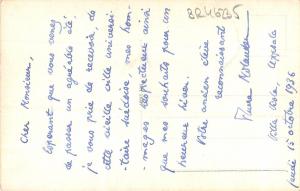 BR46285
Cher Monsieur,
Espérant que vous venez
de passer un agréable été,
je vous prie de recevoir, de
cette vieille cité universi-
-taire suédoise, mes hom-
-mages respectueux ainsi
que mes souhaits pour un
heureux hiver.
Votre ancien élève
reconnaissant
Villa Uppsala
lundi 15 octobre 1956